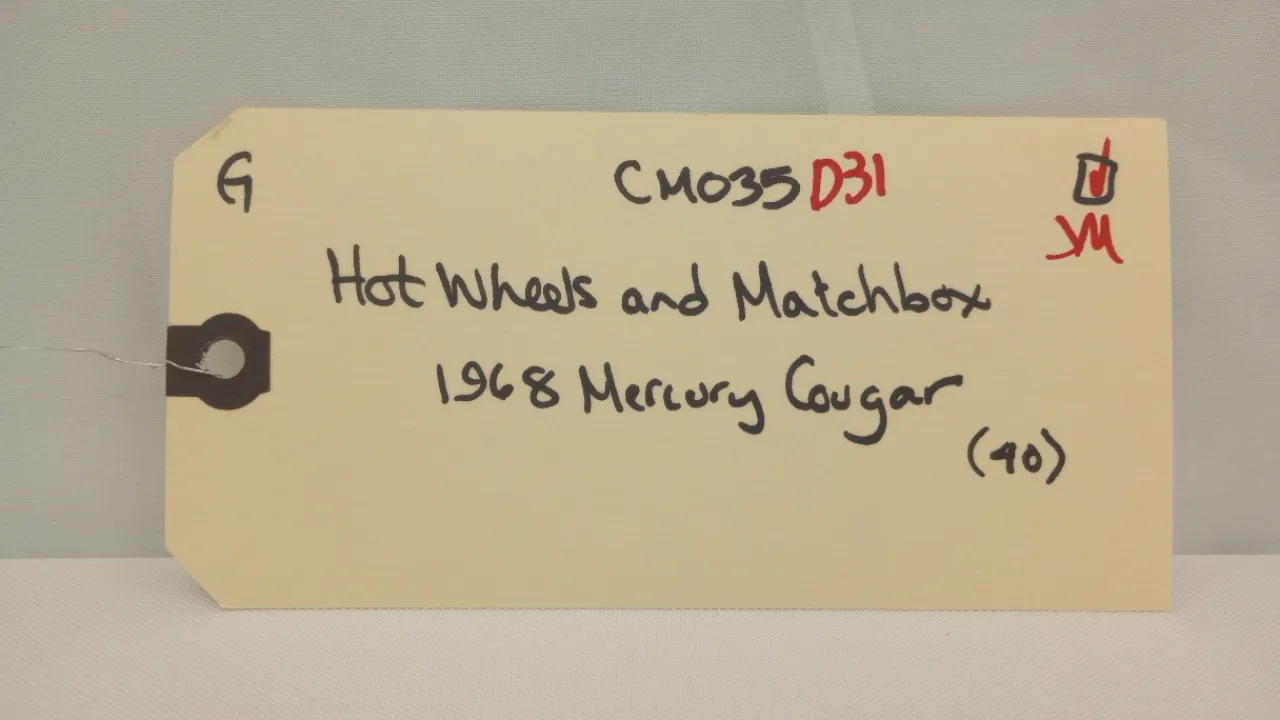 G CM035 D31
JM
Hot Wheels and Matchbox
1968 Mercury Cougar
(40)